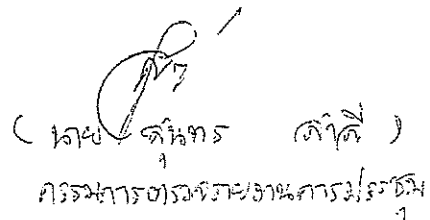 (นาย สุนทร คำดี)
กรรมการตรวจรายงานการประชุม